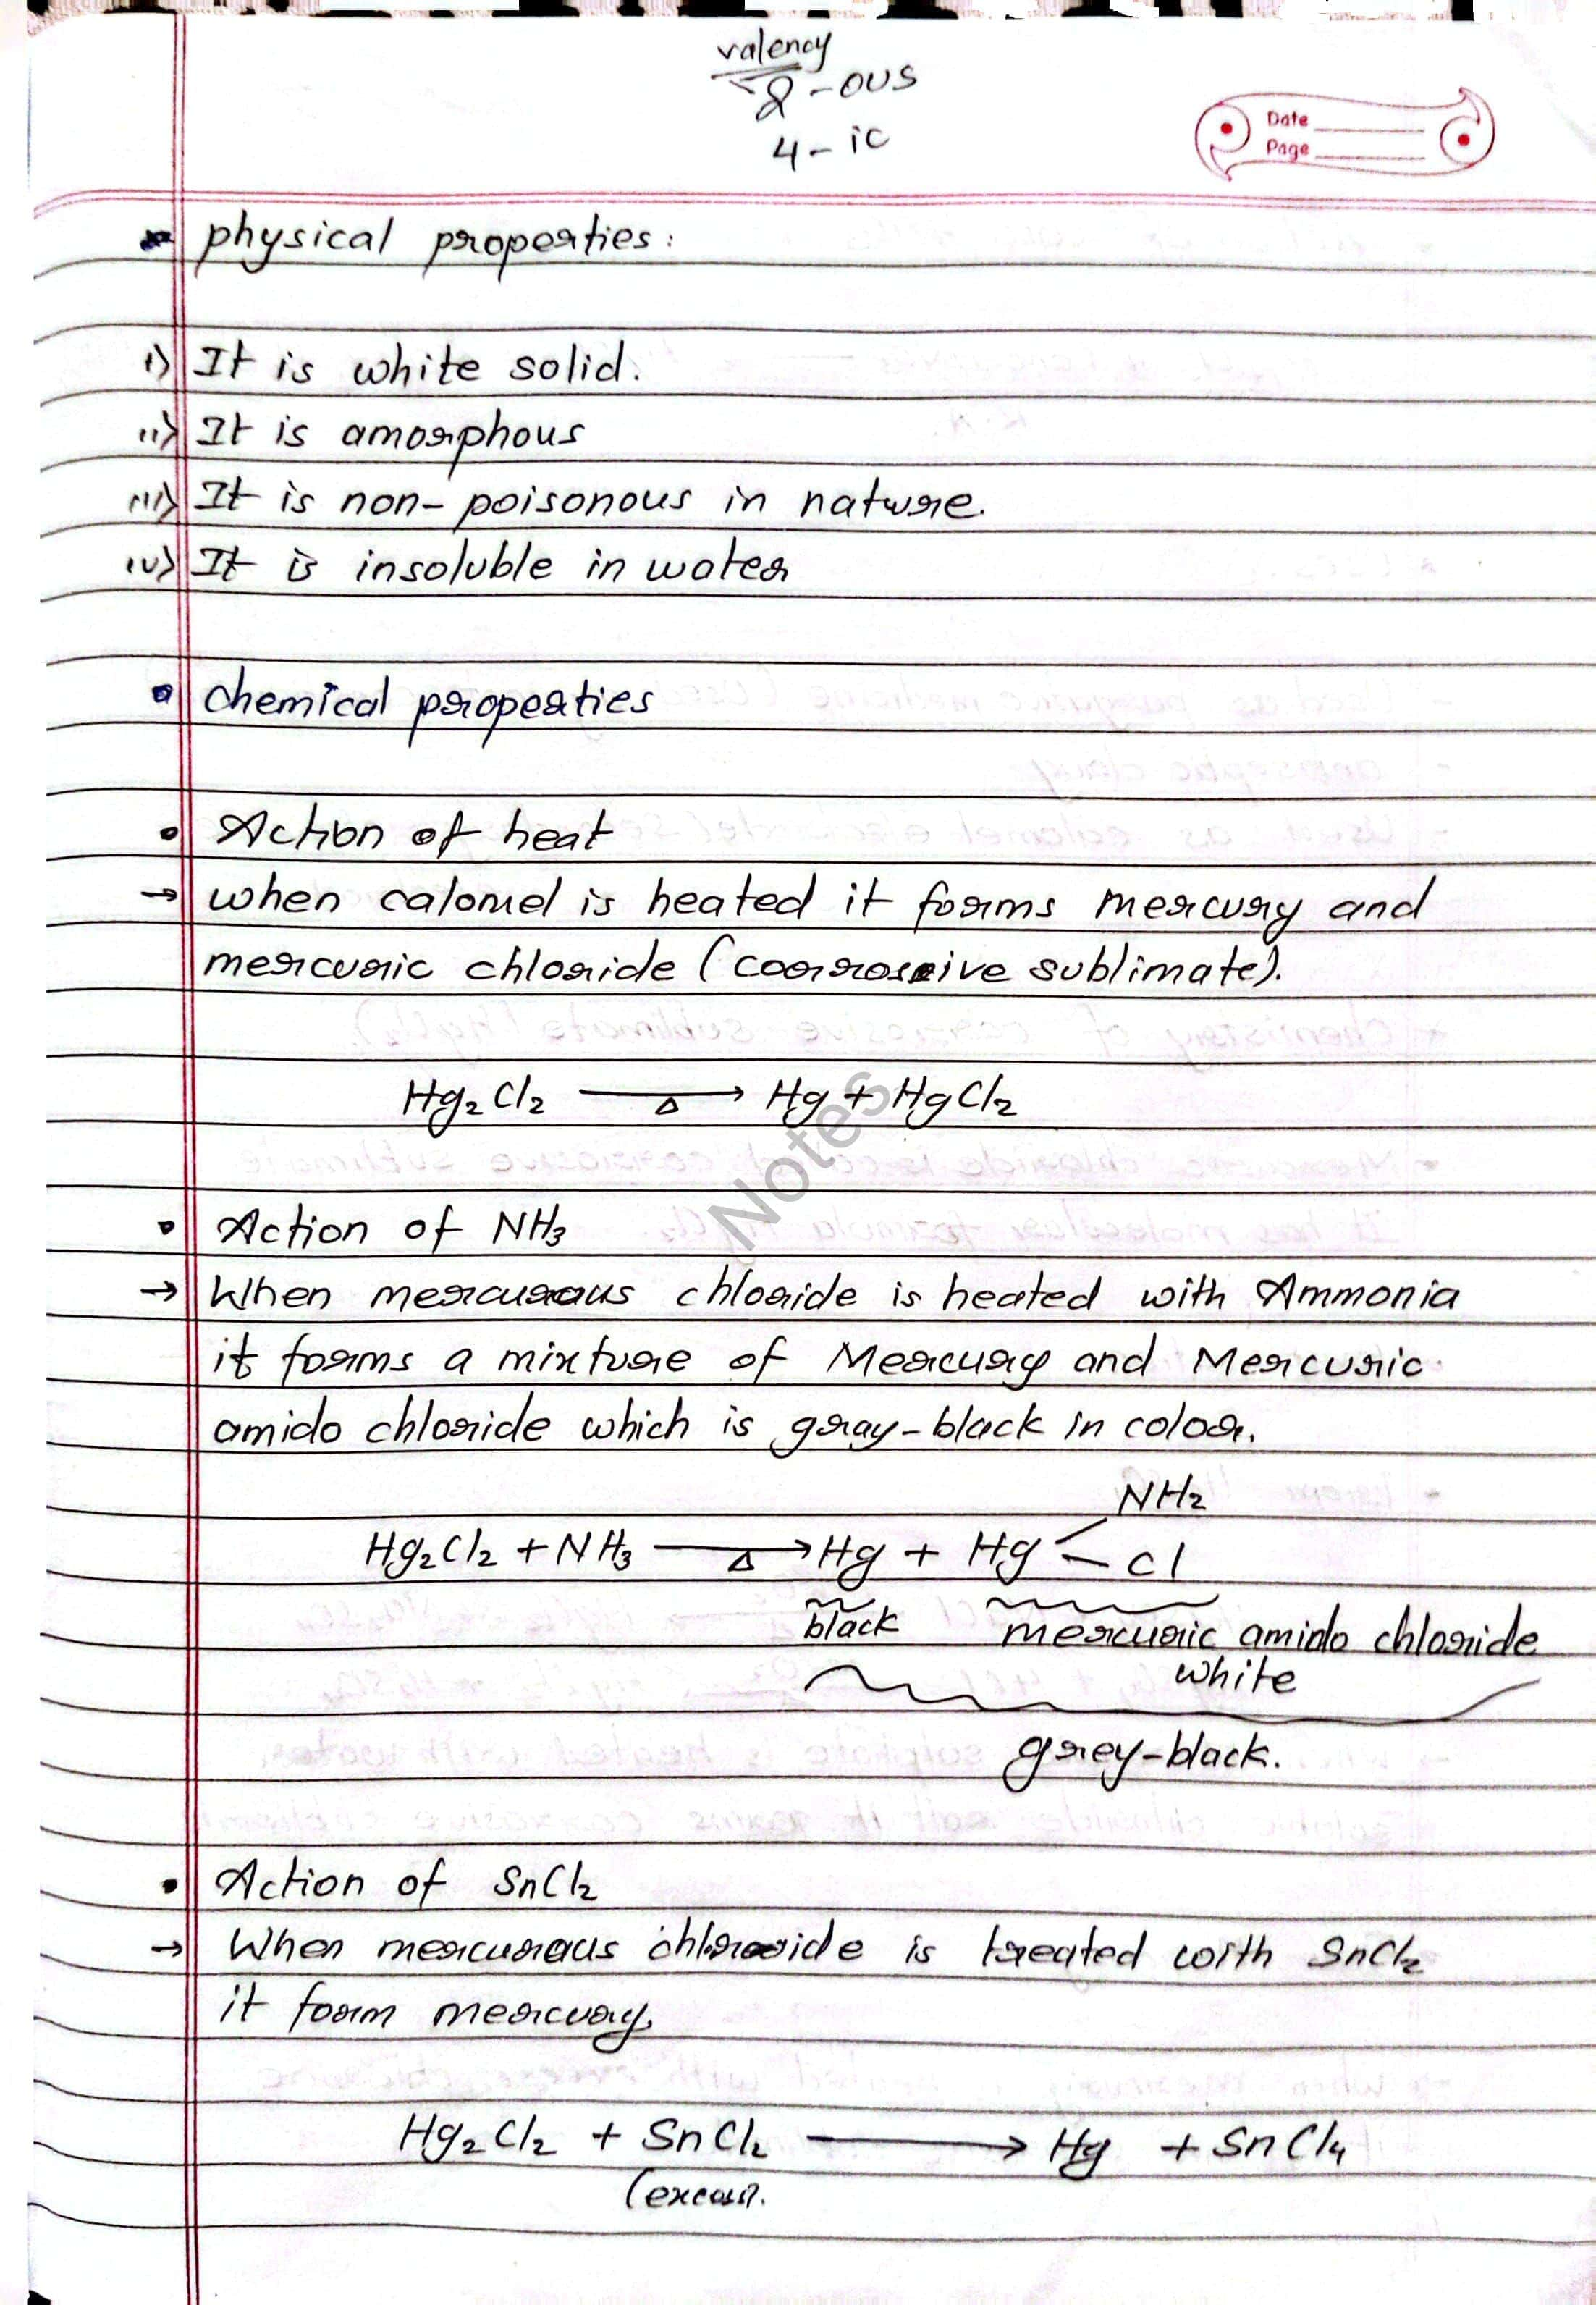 valency
2 - ous
4 - ic
Date
Page
physical properties:
i) It is white solid.
ii) It is amorphous
iii) It is non-poisonous in nature.
iv) It is insoluble in water
chemical properties
• Action of heat
→ when calomel is heated it forms mercury and
mercuric chloride (corrosive sublimate).
Hg₂Cl₂ —Δ→ Hg + HgCl₂
Notes
• Action of NH₃
→ When mercurous chloride is heated with Ammonia
it forms a mixture of Mercury and Mercuric
amido chloride which is gray-black in color.
NH₂
Hg₂Cl₂ + NH₃ —Δ→ Hg + Hg < Cl
black mercuric amido chloride
white
grey-black.
• Action of SnCl₂
→ When mercurous chloride is treated with SnCl₂
it form mercury.
Hg₂Cl₂ + SnCl₂ → Hg + SnCl₄